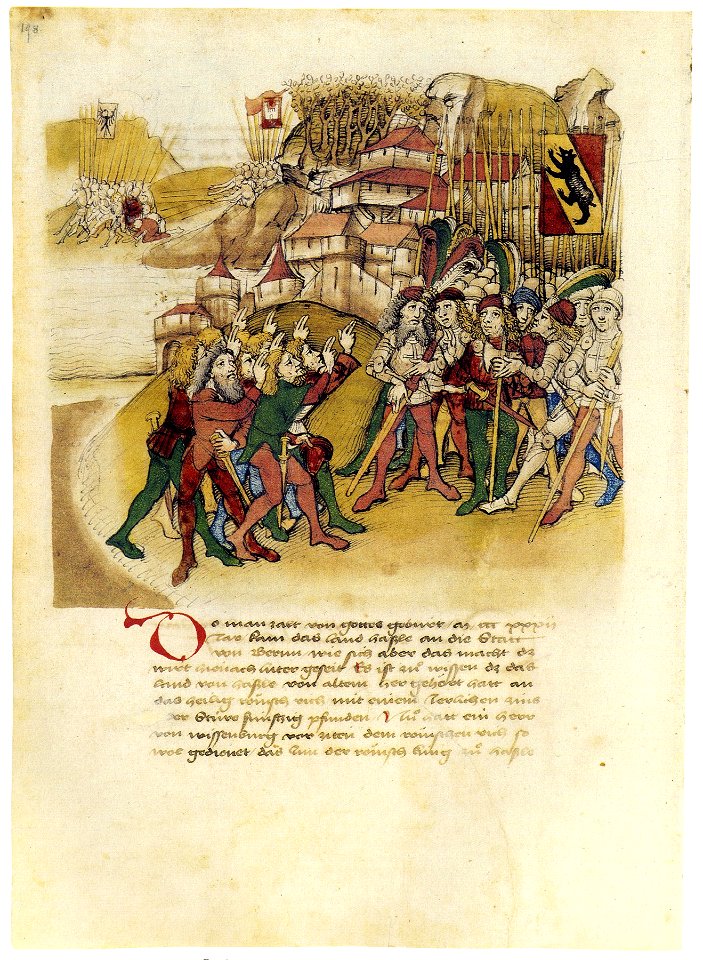 198
Do man zalt von gottes geburt m ccc xxxiiij
Jar kam das land haßle an die Statt
von Bernn wie sich aber das macht dz
wirt hienach luter geseit Es ist zů wissen dz das
land von haßle von altem her gehört hatt an
das heilig römsch rich mit einem Jerlichen zins
vr Stüre fünftzig pfunden Nů hatt ein herr
von wissenburg vor ziten dem römschen rich so
wol gedienet das Im der römsch küng zů haßle